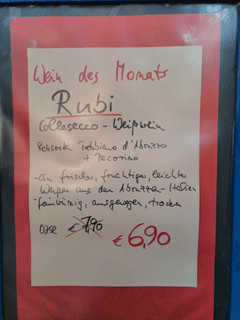 Wein des Monats
Rubi
Collesecco - Weißwein
Rebsorten Trebbiano d'Abruzzo
+ Pecorino
- ein frischer, fruchtiger, leichter
aus den Abruzzen - Italien
feinwürzig, ausgewogen, trocken
€ 7,90
€ 6,90